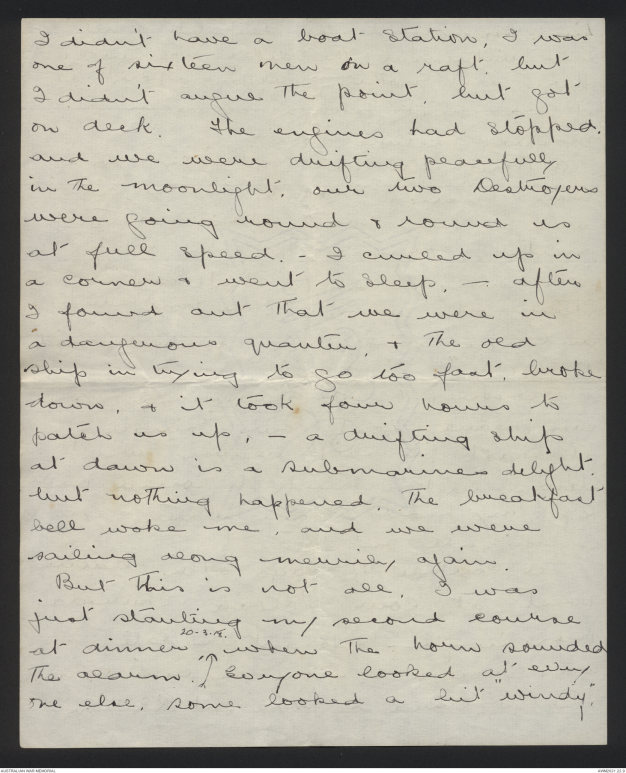 I didn't have a boat station, I was
one of sixteen men on a raft. but
I didn't argue the point, but got
on deck. The engines had stopped.
and we were drifting peacefully
in the moonlight. our two Destroyers
were going round & round us
at full speed. - I curled up in
a corner & went to sleep. - after
I found out that we were in
a dangerous quarter, & the old
ship in trying to go too fast. broke
down, & it took four hours to
patch us up, - a drifting ship
at dawn is a submarines delight.
but nothing happened. The breakfast
bell woke me. and we were
sailing along merrily again.
But this is not all, I was
just starting my second course
20-3-18.
at dinner when the horn sounded
the alarm. Everyone looked at every
one else, some looked a bit "windy".
AUSTRALIAN WAR MEMORIAL